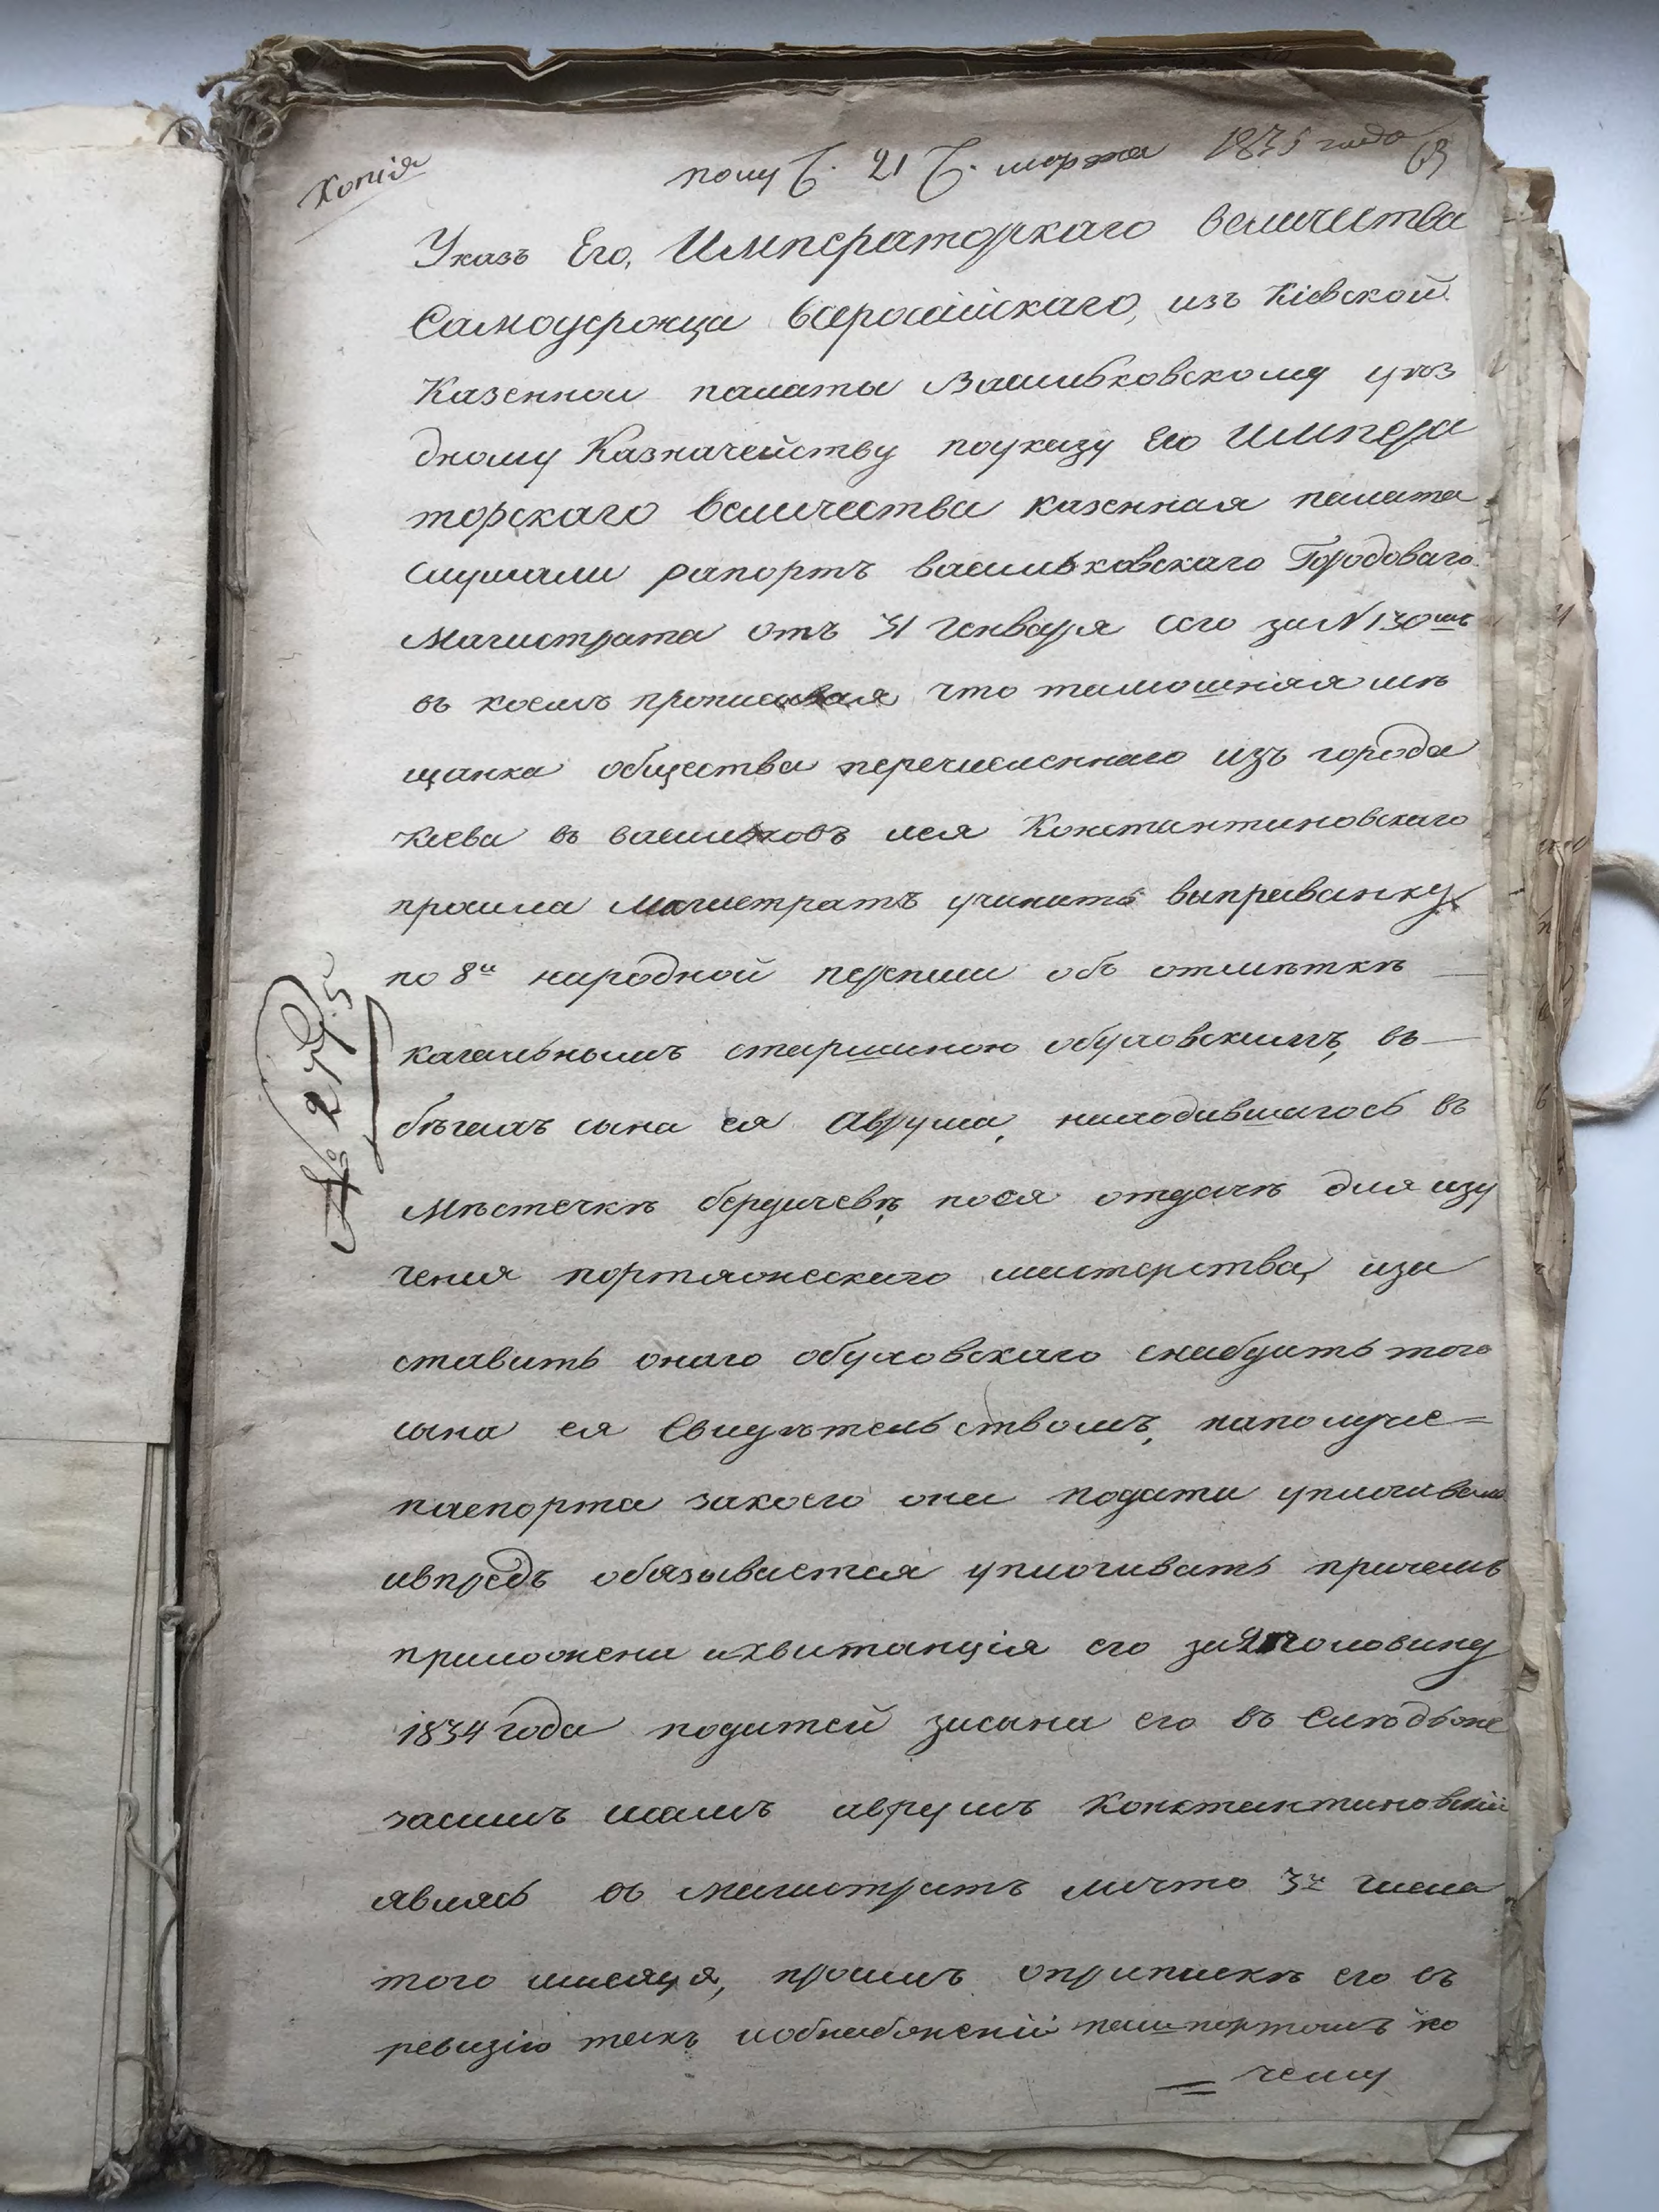 Копія
полу ч. 21 ч. марта 1835 года
69
Указъ Его, Императорскаго величества
Самодержца всероссійскаго, изъ Кіевской
Казенной палаты Васильковскому уѣз
дному Казначейству поуказу Его Импера
торскаго величества казенная палата
слушали рапортъ васильковскаго Городоваго
Магистрата отъ 31 Генваря сего за N 130мъ
въ коемъ прописывая что тамошняя мѣ
щанка общества перечисленнаго изъ города
Кіева въ васильковъ Константиновскаго
просила магистратъ учинить выправку
по 8й народной переписи объ отмѣткѣ
кагальнымъ старшиною обуховскимъ, въ
бѣгахъ сына ея Аврума, находившагось въ
Мѣстечкѣ бердичевѣ, посля отдачѣ для изу
ченія портняжескаго мастерства, иза
ставить онаго обуховскаго снабдить того
сына ея Свидѣтельствомъ, наполуче=
паспорта закоего она подати уплачивала
ивпредъ обязывается уплачивать причемъ
приложена иквитанція его за 2ю половину
1834 года податей засына его въ Слѣдъоне
засимъ самъ аврумъ Константиновскій
явясь въ магистратъ лично 3го числа
того мѣсяца, просилъ оприпискѣ его въ
ревизію такъ иобснабженіи пашпортомъ по
= чему
№ 275